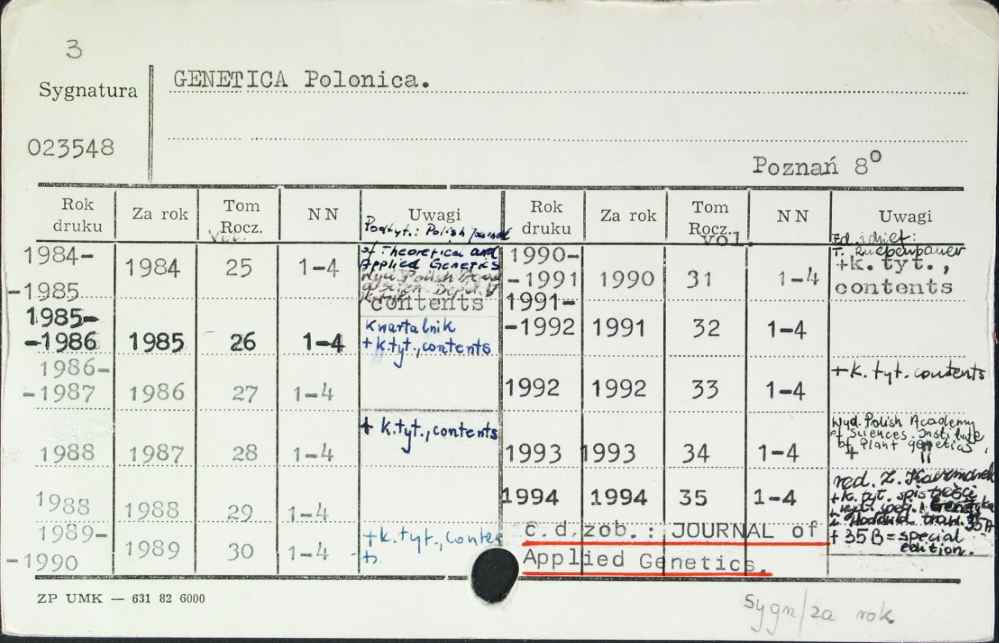 3
Sygnatura
GENETICA Polonica.
023548
Poznań 8°
Rok druku Za rok Tom Rocz. NN Uwagi Rok druku Za rok Tom Rocz. NN Uwagi
Vol.
vol.
Podtyt.: Polish Journal
of Theoretical and
Applied Genetics
contents
1984-
-1985 1984 25 1-4
1985-
-1986 1985 26 1-4 Kwartalnik
+ k.tyt., contents
1986-
-1987 1986 27 1-4
1988 1987 28 1-4 + k.tyt., contents
1988 1988 29 1-4
1989-
-1990 1989 30 1-4 + k.tyt., contents
1990-
-1991 1990 31 1-4 + k. tyt.,
contents
1991-
-1992 1991 32 1-4
1992 1992 33 1-4 + k. tyt. contents
1993 1993 34 1-4 Wyd. Polish Academy
of Sciences. Institute
of Plant genetics,
1994 1994 35 1-4 red. Z. Kaczmarek
+ k. tyt. spis treści
+ 35B = special
edition.
c.d.zob.: JOURNAL of
Applied Genetics.
ZP UMK — 631 82 6000
Sygn/za rok